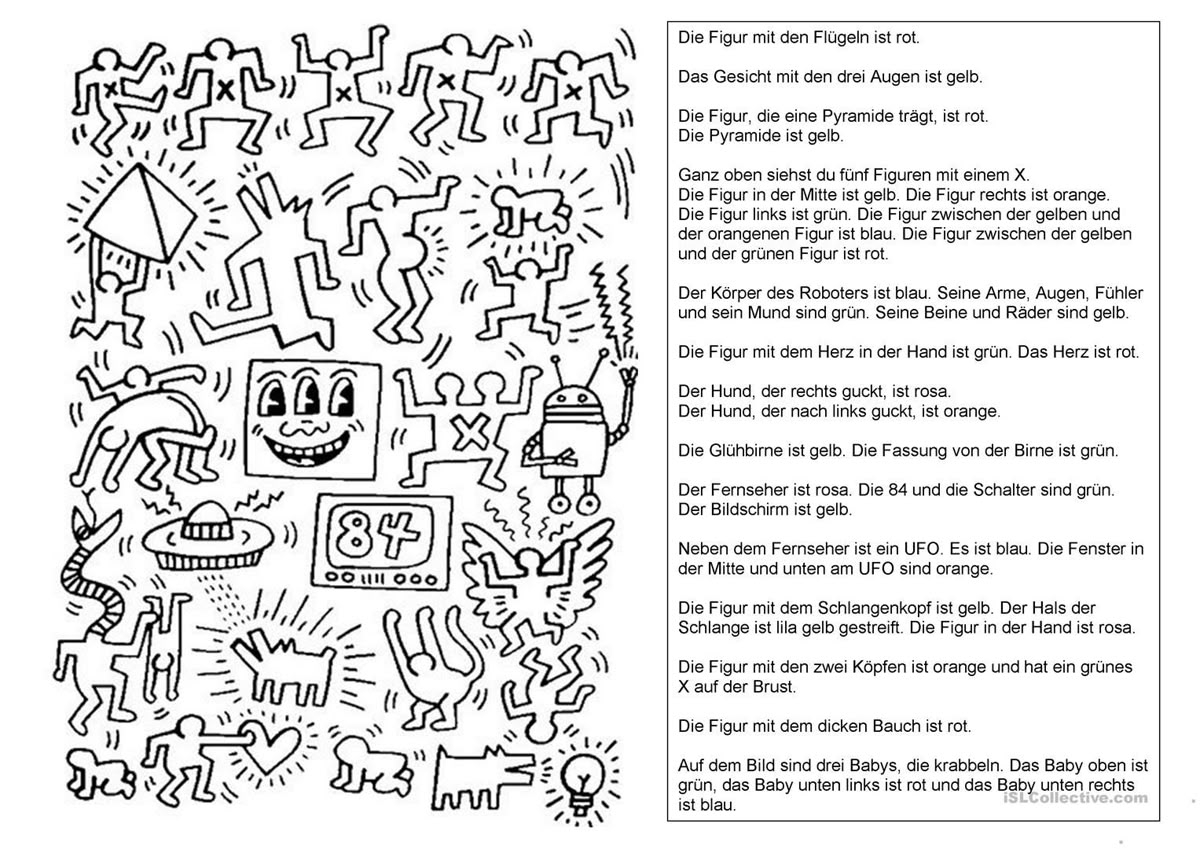 Die Figur mit den Flügeln ist rot.
Das Gesicht mit den drei Augen ist gelb.
Die Figur, die eine Pyramide trägt, ist rot.
Die Pyramide ist gelb.
Ganz oben siehst du fünf Figuren mit einem X.
Die Figur in der Mitte ist gelb. Die Figur rechts ist orange.
Die Figur links ist grün. Die Figur zwischen der gelben und
der orangenen Figur ist blau. Die Figur zwischen der gelben
und der grünen Figur ist rot.
Der Körper des Roboters ist blau. Seine Arme, Augen, Fühler
und sein Mund sind grün. Seine Beine und Räder sind gelb.
Die Figur mit dem Herz in der Hand ist grün. Das Herz ist rot.
Der Hund, der rechts guckt, ist rosa.
Der Hund, der nach links guckt, ist orange.
Die Glühbirne ist gelb. Die Fassung von der Birne ist grün.
Der Fernseher ist rosa. Die 84 und die Schalter sind grün.
Der Bildschirm ist gelb.
Neben dem Fernseher ist ein UFO. Es ist blau. Die Fenster in
der Mitte und unten am UFO sind orange.
Die Figur mit dem Schlangenkopf ist gelb. Der Hals der
Schlange ist lila gelb gestreift. Die Figur in der Hand ist rosa.
Die Figur mit den zwei Köpfen ist orange und hat ein grünes
X auf der Brust.
Die Figur mit dem dicken Bauch ist rot.
Auf dem Bild sind drei Babys, die krabbeln. Das Baby oben ist
grün, das Baby unten links ist rot und das Baby unten rechts
ist blau.
iSLCollective.com
X X X X X
X
84